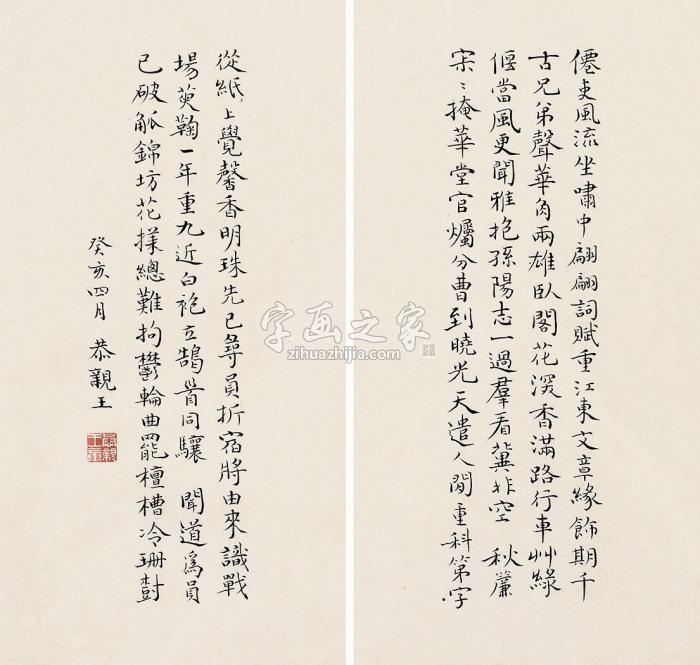 僊吏風流坐嘯中翩翩詞賦重江東文章緣飾期千
古兄弟聲華角兩雄臥閣花深香滿路行車艸綠
偃當風更聞雅抱孫陽志一過羣看冀北空 秋簾
宋〻掩華堂官爥分曹到曉光天遣人閒重科第字
從紙上覺馨香明珠先已尋員折宿將由來識戰
場萸鞠一年重九近白袍立鵠首同驤 聞道爲員
已破觚錦坊花㨾總難拘鬱輪曲罷檀槽冷珊樹
癸亥四月 恭親王
字画之家
zihuazhijia.com